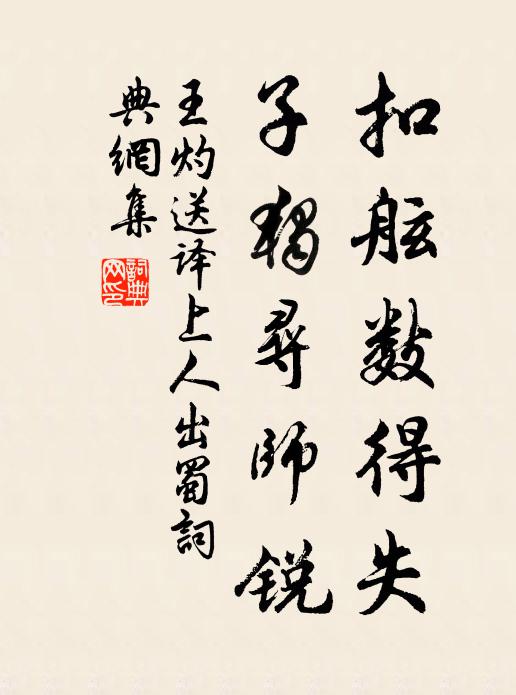 扣舷数得失
子独寻師锐
王灼送译上人出蜀詞
典網集
詞典網印